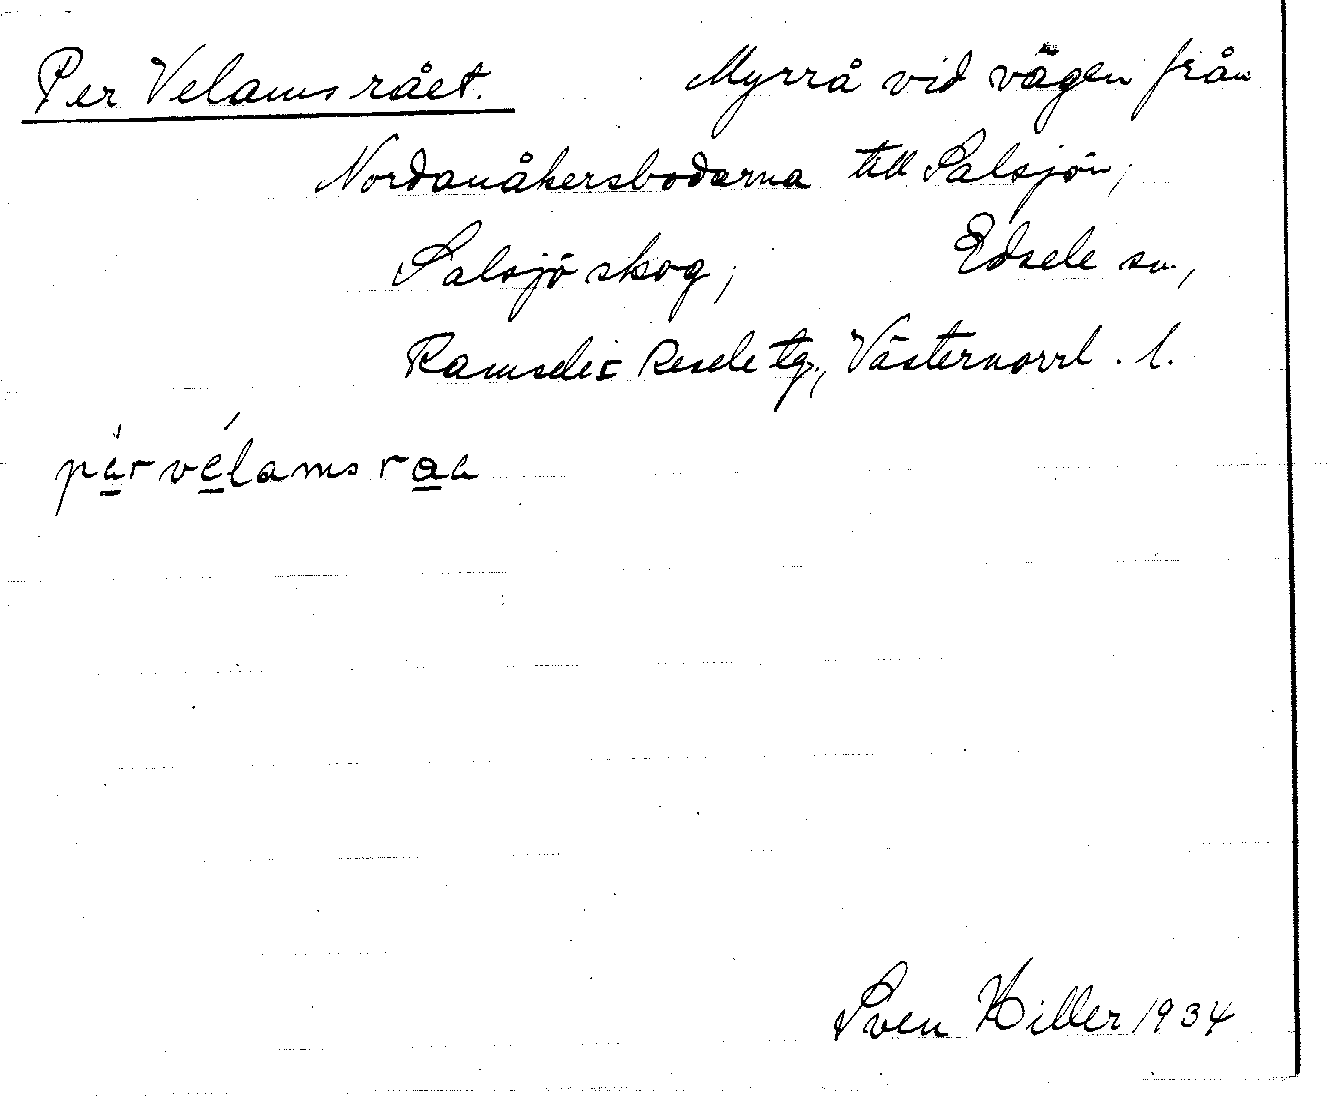 Per Velamsrået. Myrrå vid vägen från
Nordanåkersbodarna till Salsjön,
Salsjö skog, Edsele sn.,
Ramsele= Resele tg., Västernorrl. l.
pèrvélamsraa
Sven Hiller 1934